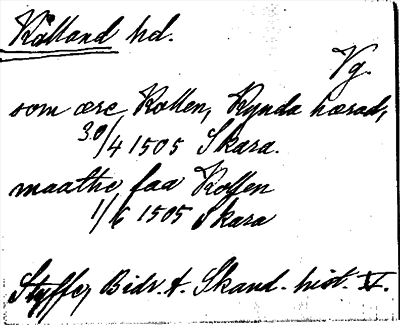 Kålland hd.
Vg.
som ære Kollen, Kynda hærad,
30/4 1505 Skara.
maathe faa Kollen
1/6 1505 Skara
Styffe, Bidr. t. Skand. hist. V.